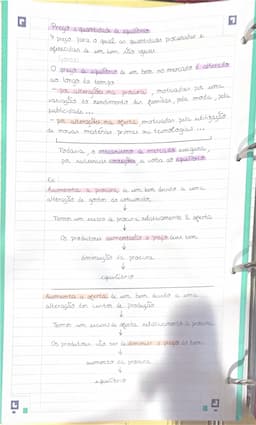 Preço e quantidade de equilíbrio
↳ preço para o qual as quantidades procuradas e
oferecidas de um bem são iguais
O preço de equilíbrio de um bem no mercado é alterado
ao longo do tempo
- por alterações na procura, motivadas por uma
variação do rendimento das famílias, pela moda, pela
publicidade ...
- por alterações na oferta, motivadas pela utilização
de novas matérias primas ou tecnologias ...
Todavia, o mecanismo de mercado assegura,
por sucessivas correções, a volta ao equilíbrio
Ex:
Aumenta a procura de um bem devido a uma
alteração de gostos do consumidor
↓
Temos um excesso de procura relativamente à oferta
↓
Os produtores aumentarão o preço desse bem
↓
diminuição da procura
↓
equilíbrio
Aumenta a oferta de um bem devido a uma
alteração dos custos de produção
↓
Temos um excesso de oferta relativamente à procura
↓
Os produtores vão ter de diminuir o preço do bem
↓
aumento da procura
↓
equilíbrio